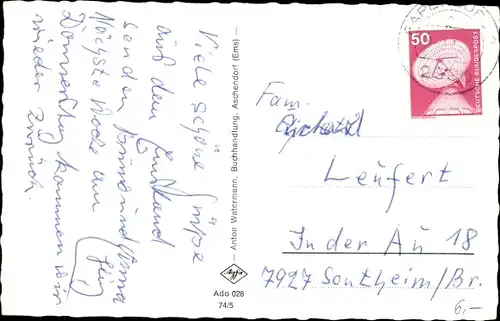 Viele schöne Grüße
aus dem Emsland
senden
Nächste Woche am
Donnerstag kommen wir
wieder zurück.
— Anton Watermann, Buchhandlung, Aschendorf (Ems) —
Ado 028
74/5
50
DEUTSCHE BUNDESPOST
Fam.
Leufert
In der Au 18
7927 Sontheim/Br.
6,-